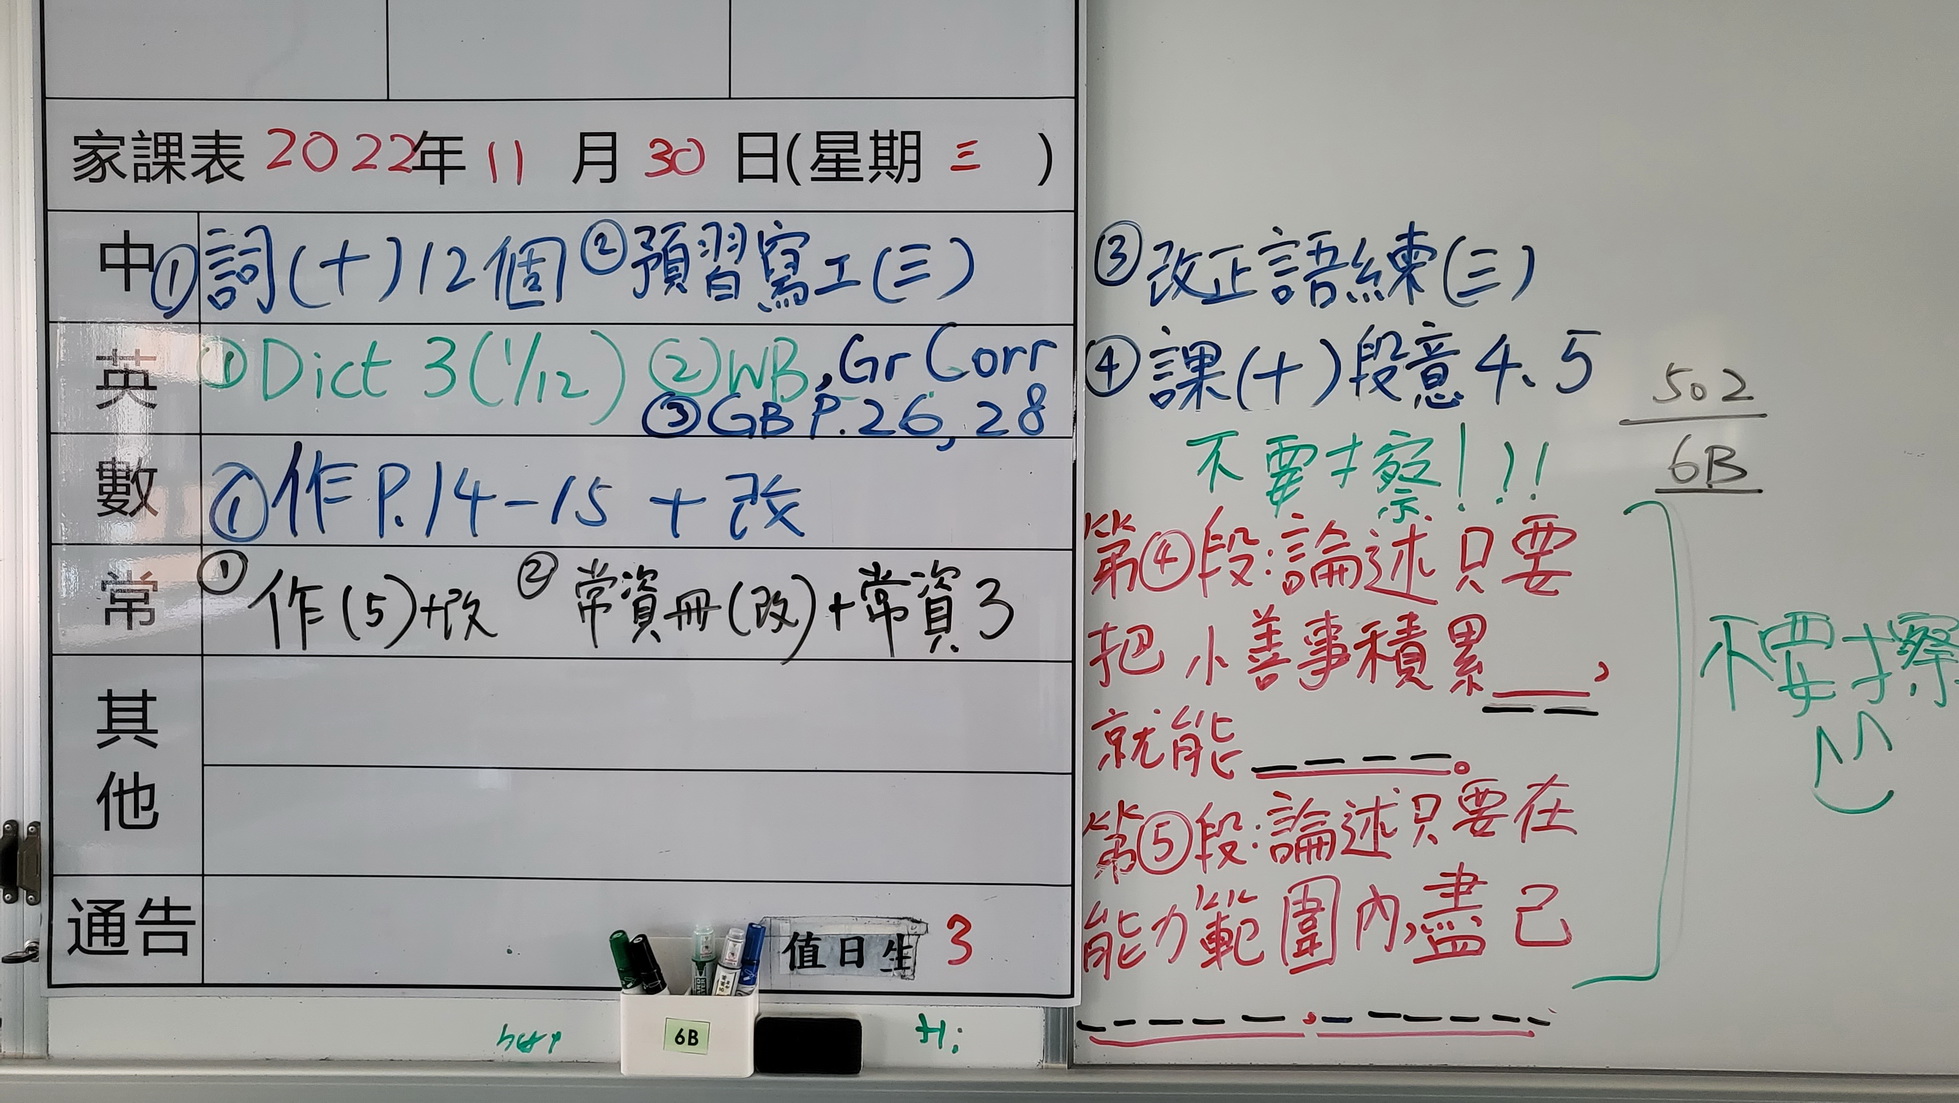 家課表 2022年 11 月 30 日(星期 三 )
中 ①詞(十)12個 ②預習寫工(三)
③改正語練(三)
英 ①Dict 3(1/12) ②WB, Gr Corr
③GB P.26, 28
④課(十)段意4、5
數 ①作P.14-15 + 改
常 ①作(5)+改 ②常資冊(改)+常資3
其他
通告
值日生 3
不要擦!!!
第④段:論述只要
把小善事積累__,
就能____。
第⑤段:論述只要在
能力範圍內,盡己
_____,______
502
6B
不要擦
6B
Hi